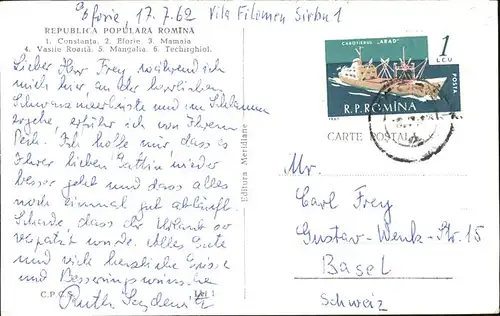 Eforie, 17.7.62 Vila Filomen Sirbu 1
REPUBLICA POPULARĂ ROMÎNĂ
1. Constanța. 2. Eforie. 3. Mamaia
4. Vasile Roaită. 5. Mangalia. 6. Techirghiol.
Lieber Herr Frey, während ich
mich hier an der herrlichen
Schwarzmeerküste und im Schlamm
erhole, erfuhr ich von Ihrem
Pech. Ich hoffe nur, dass es
Ihrer lieben Gattin wieder
besser geht und dass alles
noch einmal gut abläuft.
Schade, dass Ihr Urlaub so
verpatzt wurde. Alles Gute
und viele herzliche Grüsse
und Besserungswünsche
Ruth
C.P.C.S. Lei 1
Editura Meridiane
CARGOTIERUL „ARAD”
R.P.ROMÎNĂ
POSTA
1
LEU
CARTE POSTALĂ
Mr.
Carl Frey
Gustav-Wenk-Str. 15
Basel
Schweiz